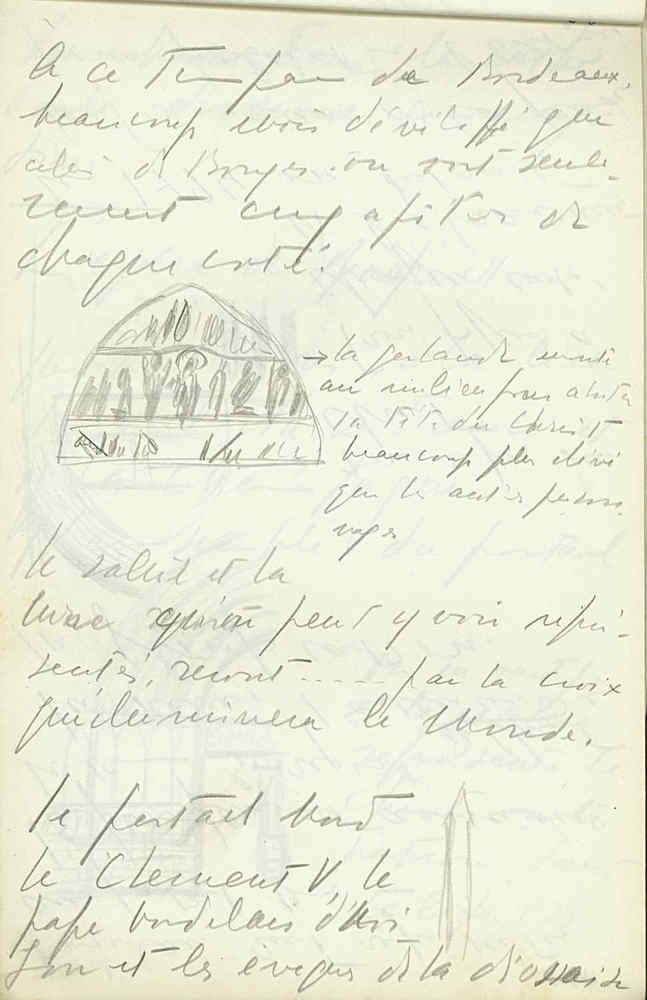 A ce Tympan de Bordeaux,
beaucoup moins développé que
celui de Bourges où sont seule-
ment cinq apôtres de
chaque coté.
→ la guirlande monte
au milieu pour abriter
la tête du Christ
beaucoup plus élevé
que les autres person-
nages
le soleil et la
lune qu'on peut y voir repré-
sentés, seront ..... par la croix
qui illuminera le Monde.
le portail Nord
le Clement V, le
pape bordelais d'
et les évêques de la